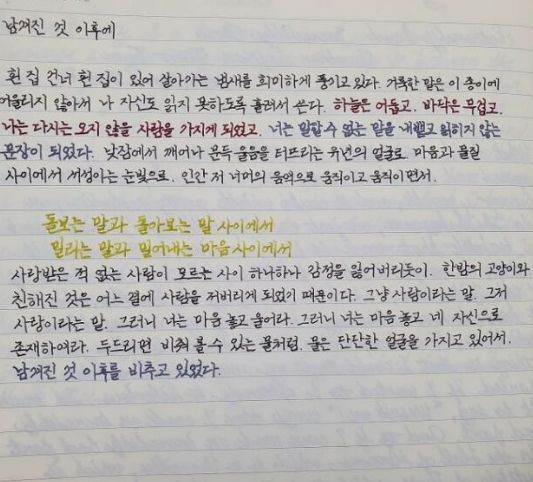 남겨진 것 이후에
흰 집 건너 흰 집이 있어 살아가는 냄새를 희미하게 풍기고 있다. 거룩한 말은 이 종이에
어울리지 않아서 나 자신도 읽지 못하도록 흘려서 쓴다. 하늘은 어둡고. 바닥은 무겁고.
나는 다시는 오지 않을 사람을 가지게 되었고. 너는 말할 수 없는 말을 내뱉고 읽히지 않는
문장이 되었다. 낮잠에서 깨어나 문득 울음을 터뜨리는 유년의 얼굴로. 마음과 물질
사이에서 서성이는 눈빛으로. 인간 저 너머의 음역으로 움직이고 움직이면서.
돌보는 말과 돌아보는 말 사이에서
밀리는 말과 밀어내는 마음 사이에서
사랑받은 적 없는 사람이 모르는 사이 하나하나 감정을 잃어버리듯이. 한밤의 고양이와
친해진 것은 어느 결에 사람을 저버리게 되었기 때문이다. 그냥 사람이라는 말. 그저
사랑이라는 말. 그러니 너는 마음 놓고 울어라. 그러니 너는 마음 놓고 네 자신으로
존재하여라. 두드리면 비춰 볼 수 있는 물처럼. 물은 단단한 얼굴을 가지고 있어서.
남겨진 것 이후를 비추고 있었다.